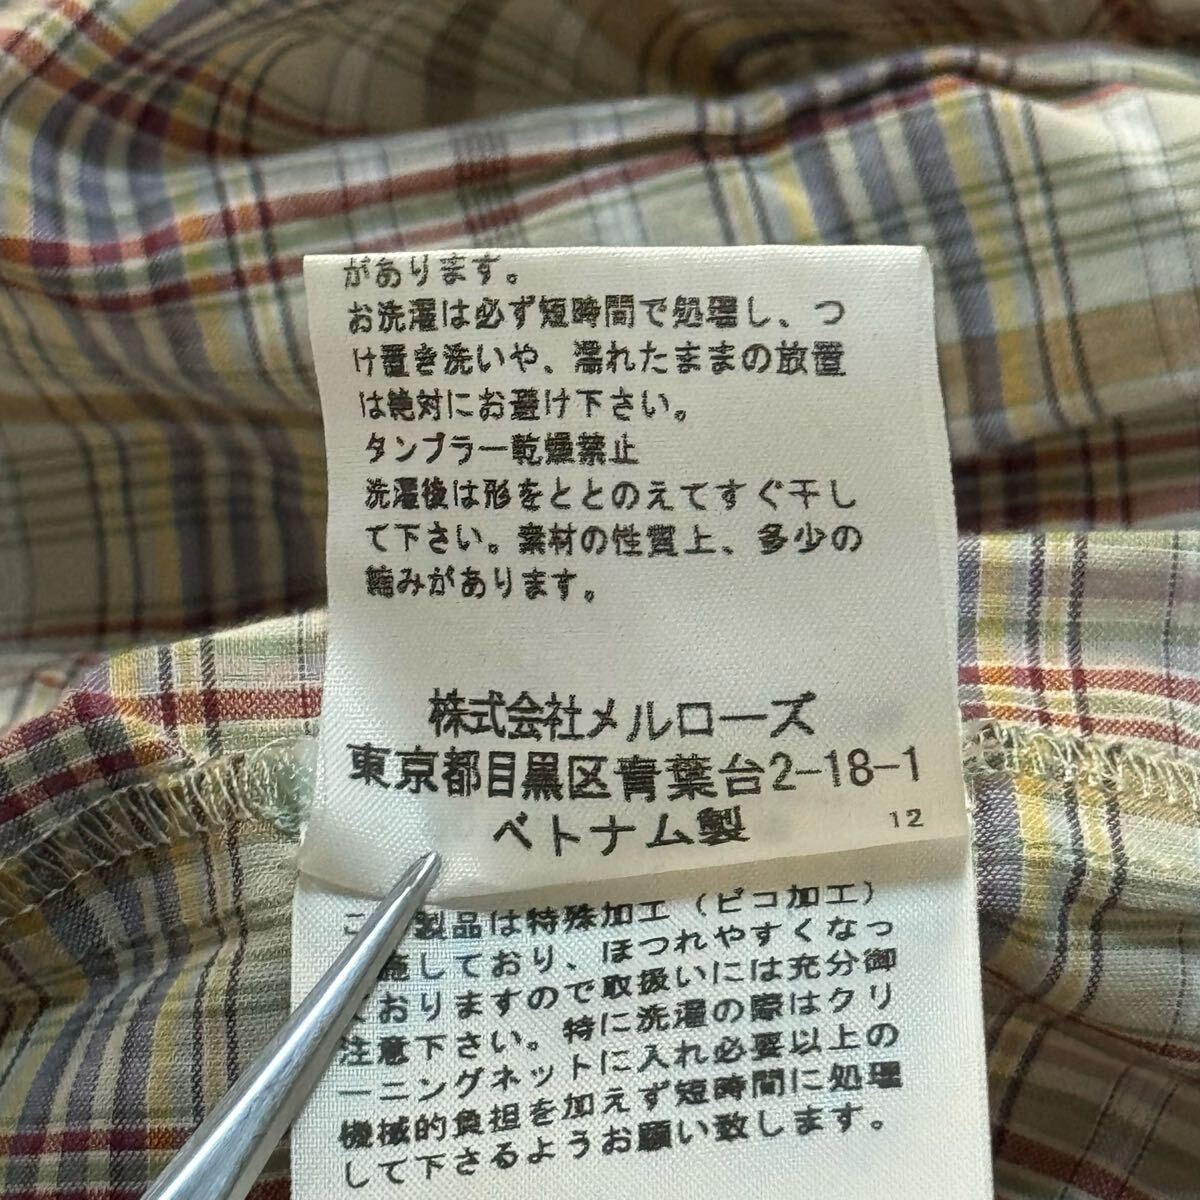 があります。
お洗濯は必ず短時間で処理し、つ
け置き洗いや、濡れたままの放置
は絶対にお避け下さい。
タンブラー乾燥禁止
洗濯後は形をととのえてすぐ干し
て下さい。素材の性質上、多少の
縮みがあります。
株式会社メルローズ
東京都目黒区青葉台2-18-1
ベトナム製
12
こ 製品は特殊加工(ピコ加工)
施しており、ほつれやすくなっ
ておりますので取扱いには充分御
注意下さい。特に洗濯の際はクリ
ーニングネットに入れ必要以上の
機械的負担を加えず短時間に処理
して下さるようお願い致します。